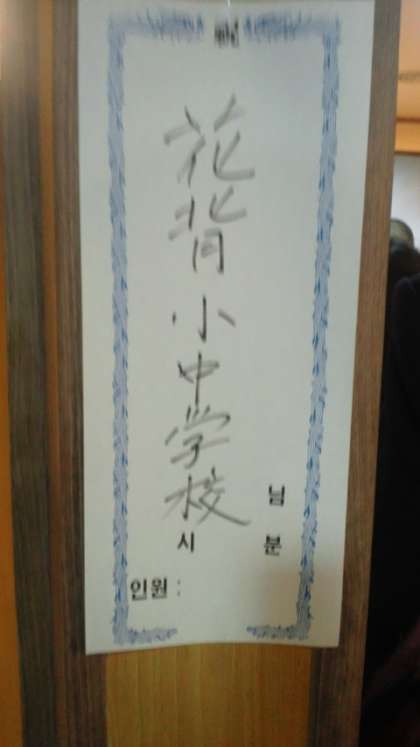 花背小中学校
님
시 분
인원 :